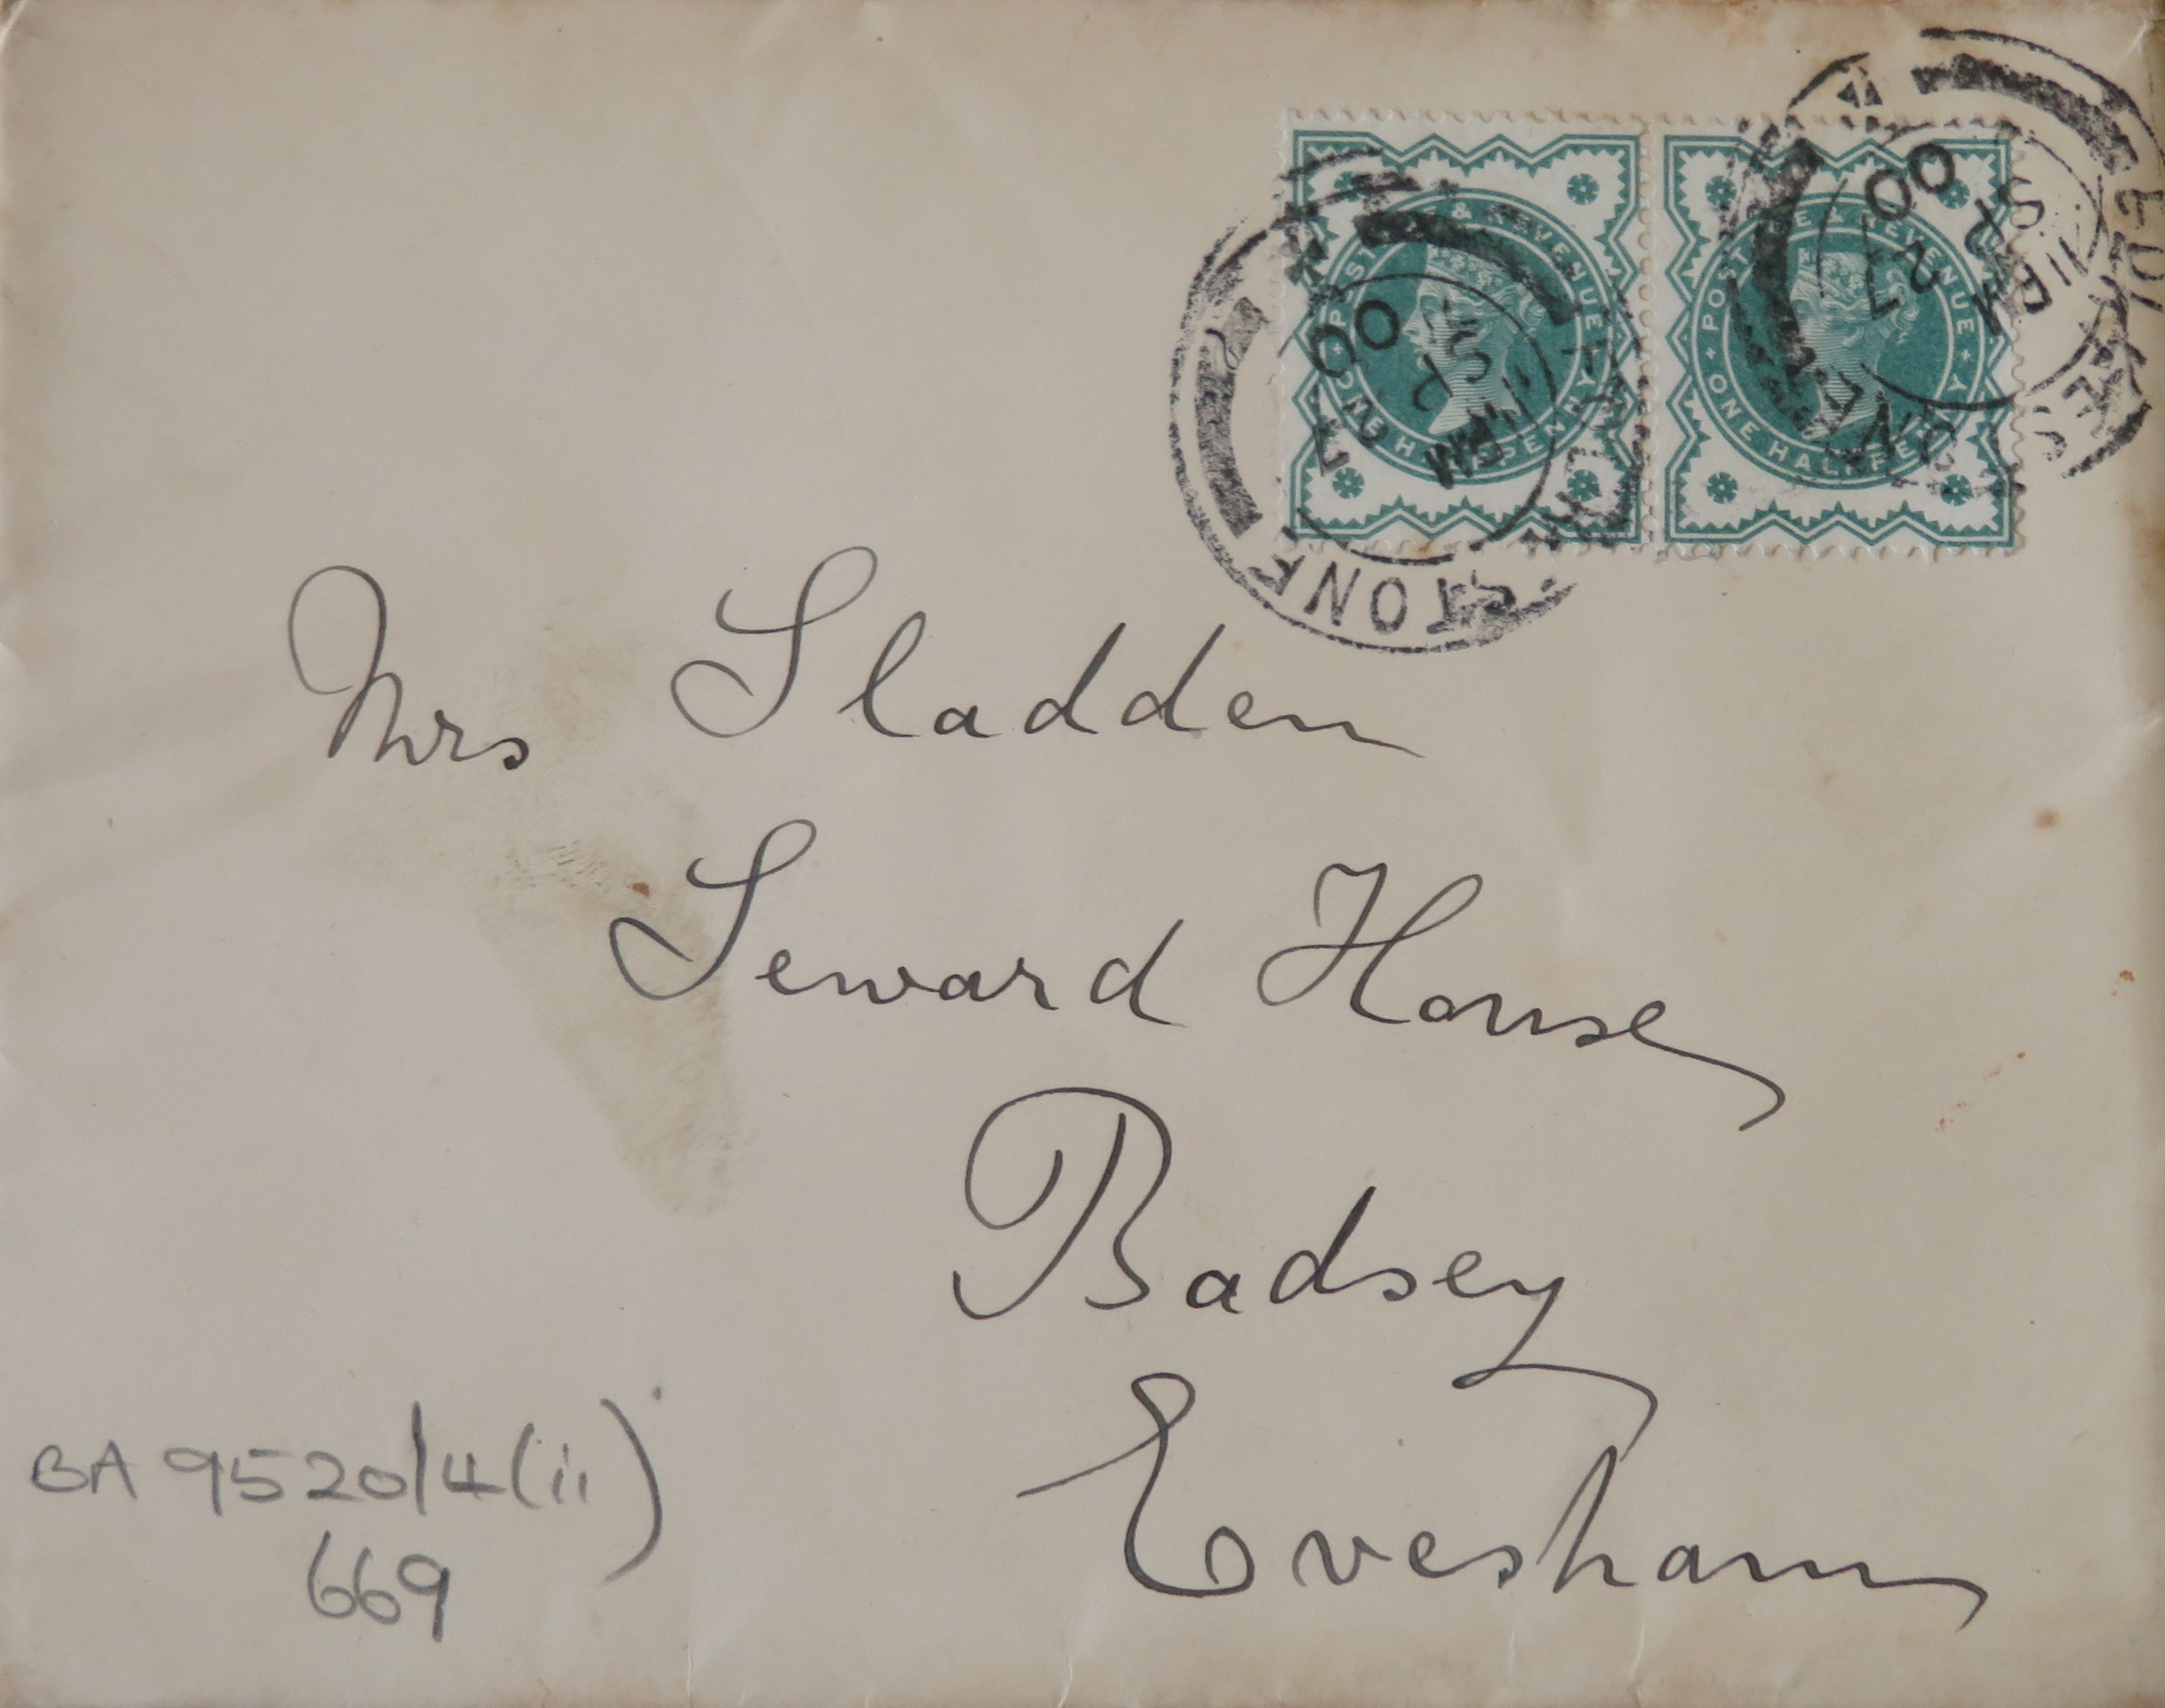 POSTAGE & REVENUE
ONE HALFPENNY
POSTAGE & REVENUE
ONE HALFPENNY
PM
27
00
27
00
Mrs Sladden
Seward House
Badsey
Evesham
BA 9520/4(ii)
669